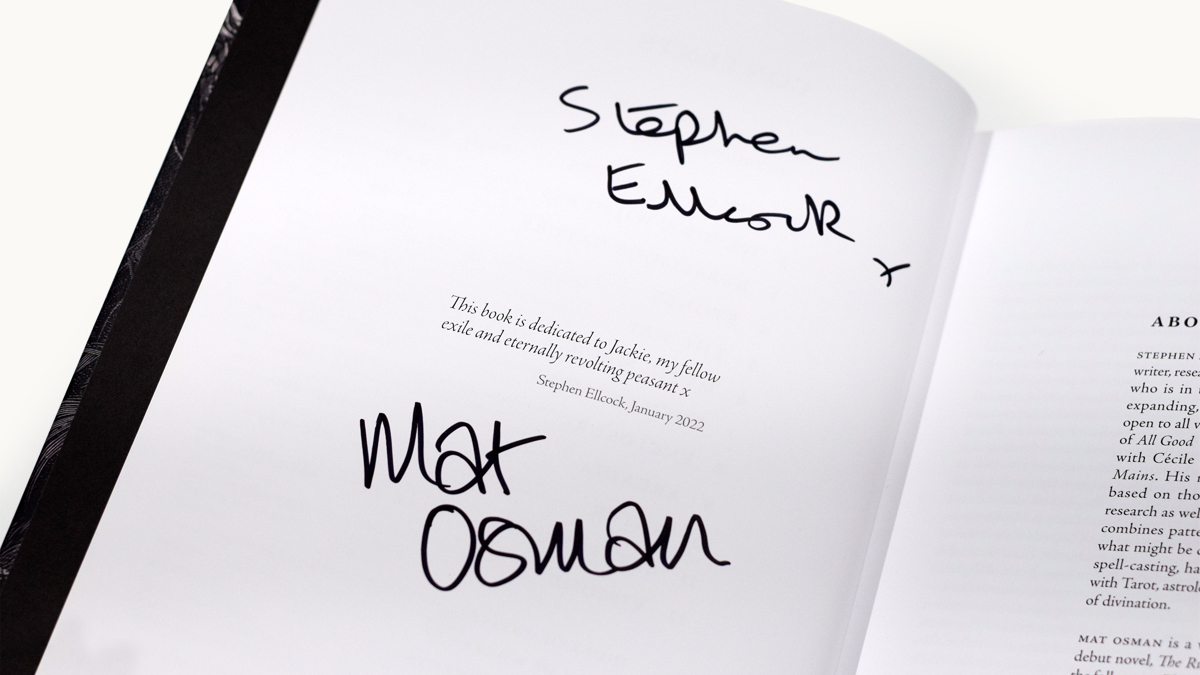 Stephen
Ellcock
x
This book is dedicated to Jackie, my fellow
exile and eternally revolting peasant x
Stephen Ellcock, January 2022
Mat
Osman
ABO
STEPHEN
writer, rese
who is in
expanding,
open to all
of All Good
with Cécile
Mains. His
based on tho
research as wel
combines patte
what might be
spell-casting, ha
with Tarot, astrol
of divination.
MAT OSMAN is a
debut novel, The R